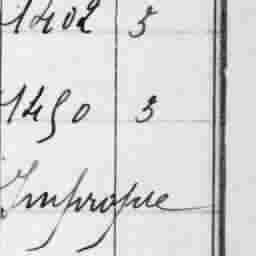 1402 5
1450 3
Impropre